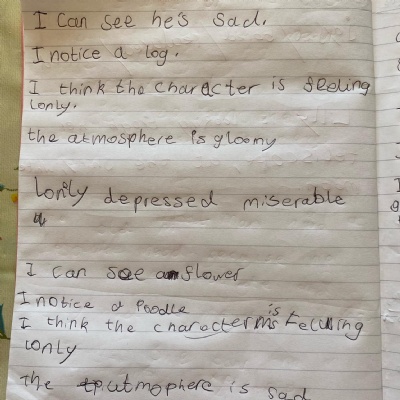 I can see he's sad.
I notice a log.
I think the character is feeling
lonly.
the atmosphere is gloomy
lonily depressed miserable
I can see a flower
I notice a Poodle
I think the character is feeling
lonly
The atmophere is sad